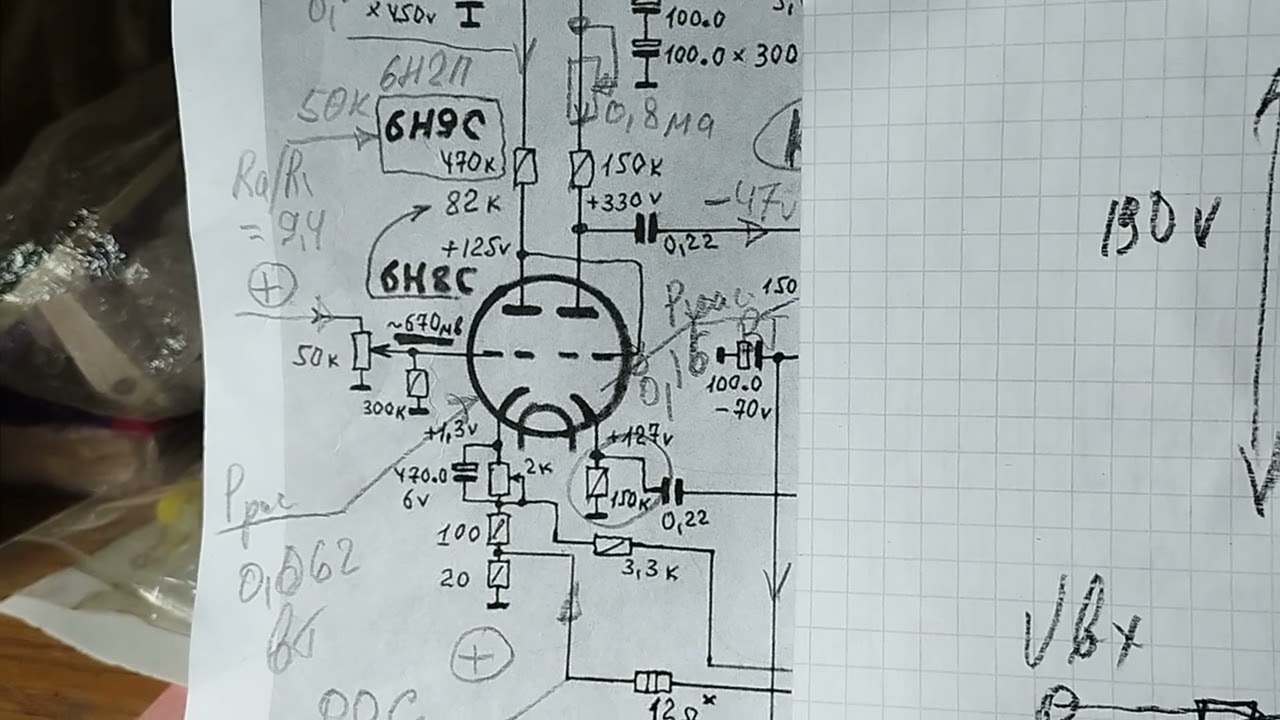 0,
× 450v
100.0
100.0 × 300
6Н2П
50к
6Н9С
0,8ма
470к
150к
Ra/Ri
= 9,4
82 к
+330 v
-47v
190 v
+125v
0,22
6Н8С
~670мв
150
50к
Ррас
0,16
100.0
-70v
300к
+1,3v
+127v
470.0
6v
2к
150к
0,22
Ррас
0,062
вт
100
20
3,3к
Vвх
ООС